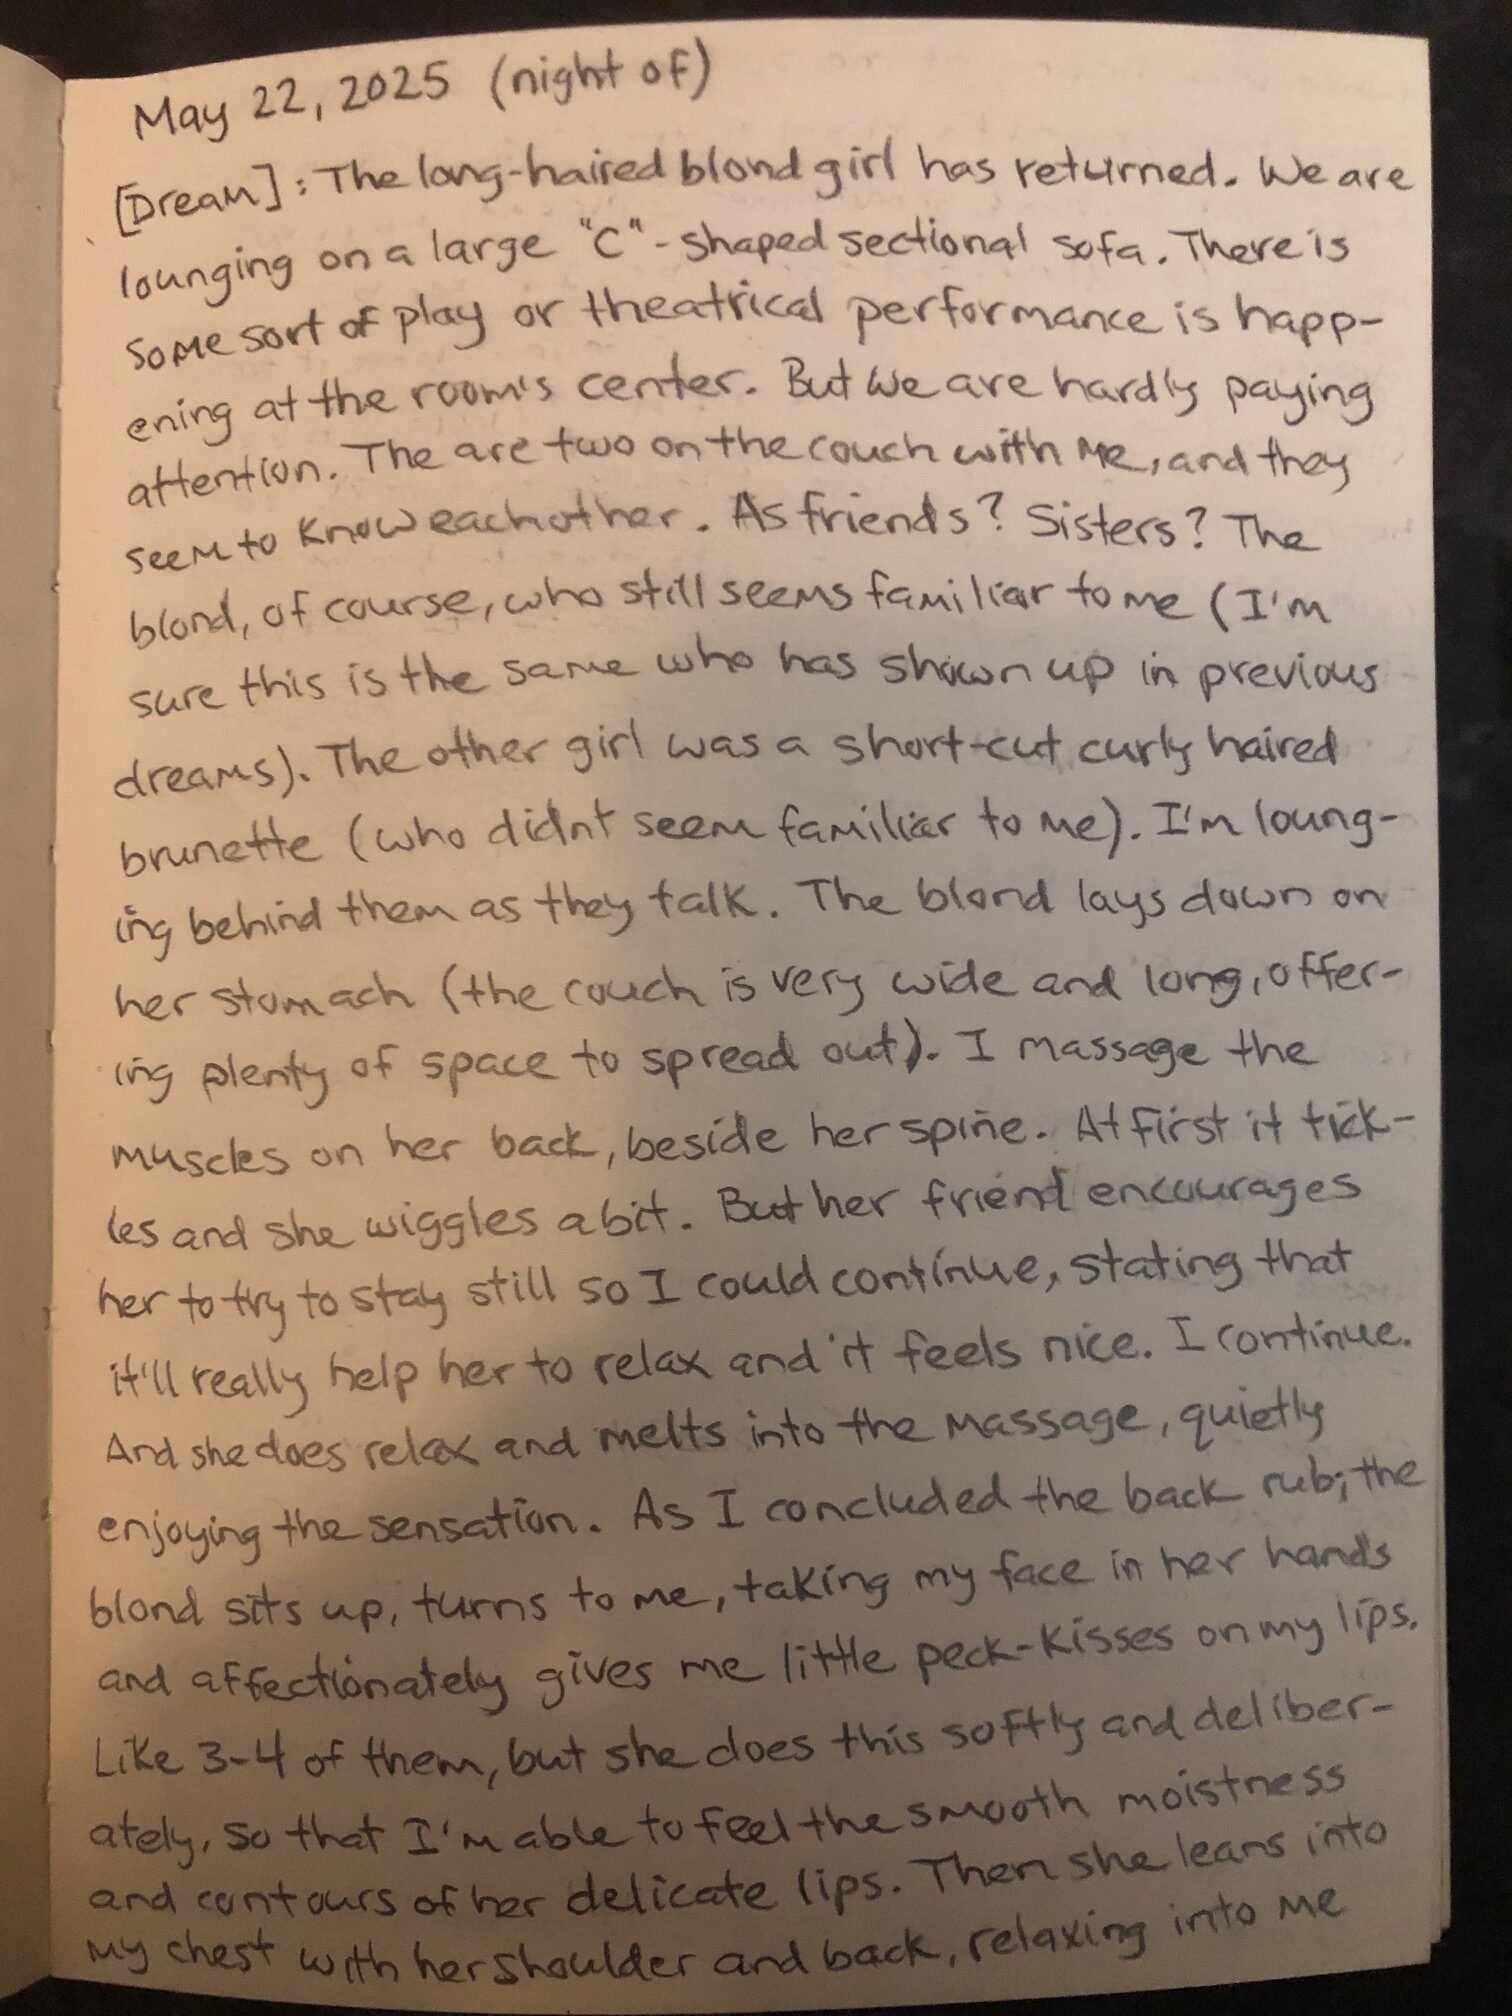 May 22, 2025 (night of)
[Dream]: The long-haired blond girl has returned. We are
lounging on a large "C"-shaped sectional sofa. There is
some sort of play or theatrical performance is happ-
ening at the room's center. But we are hardly paying
attention. The are two on the couch with me, and they
seem to know eachother. As friends? Sisters? The
blond, of course, who still seems familiar to me (I'm
sure this is the same who has shown up in previous
dreams). The other girl was a short-cut curly haired
brunette (who didnt seem familiar to me). I'm loung-
ing behind them as they talk. The blond lays down on
her stomach (the couch is very wide and long, offer-
ing plenty of space to spread out). I massage the
muscles on her back, beside her spine. At first it tick-
les and she wiggles a bit. But her friend encourages
her to try to stay still so I could continue, stating that
it'll really help her to relax and it feels nice. I continue.
And she does relax and melts into the massage, quietly
enjoying the sensation. As I concluded the back rub, the
blond sits up, turns to me, taking my face in her hands
and affectionately gives me little peck-kisses on my lips.
Like 3-4 of them, but she does this softly and deliber-
ately, so that I'm able to feel the smooth moistness
and contours of her delicate lips. Then she leans into
my chest with her shoulder and back, relaxing into me